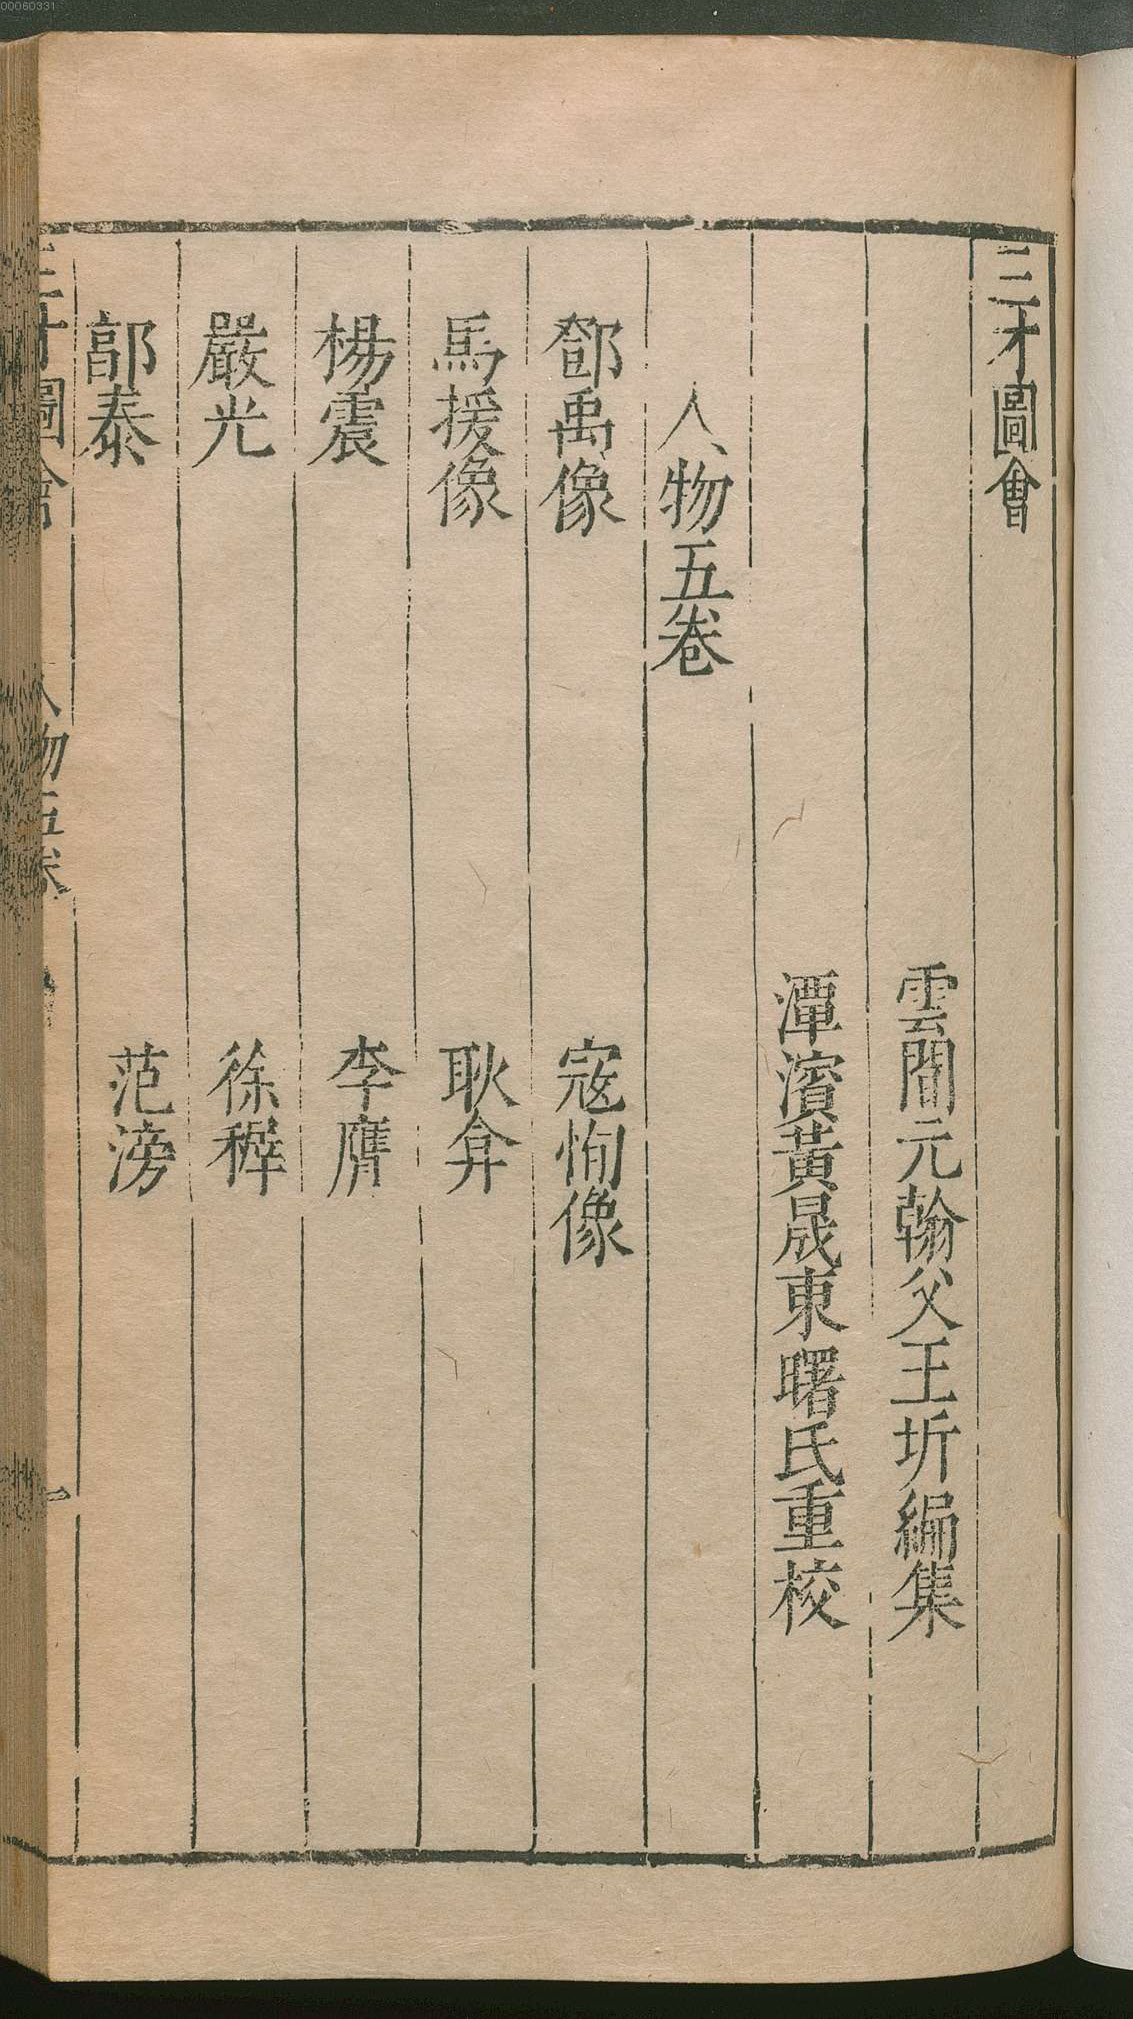 00060331
三才圖會
雲間元翰父王圻編集
潭濱黃晟東曙氏重校
人物五卷
鄧禹像 寇恂像
馬援像 耿弇
楊震 李膺
嚴光 徐穉
郭泰 范滂
三才圖會 人物五卷 一